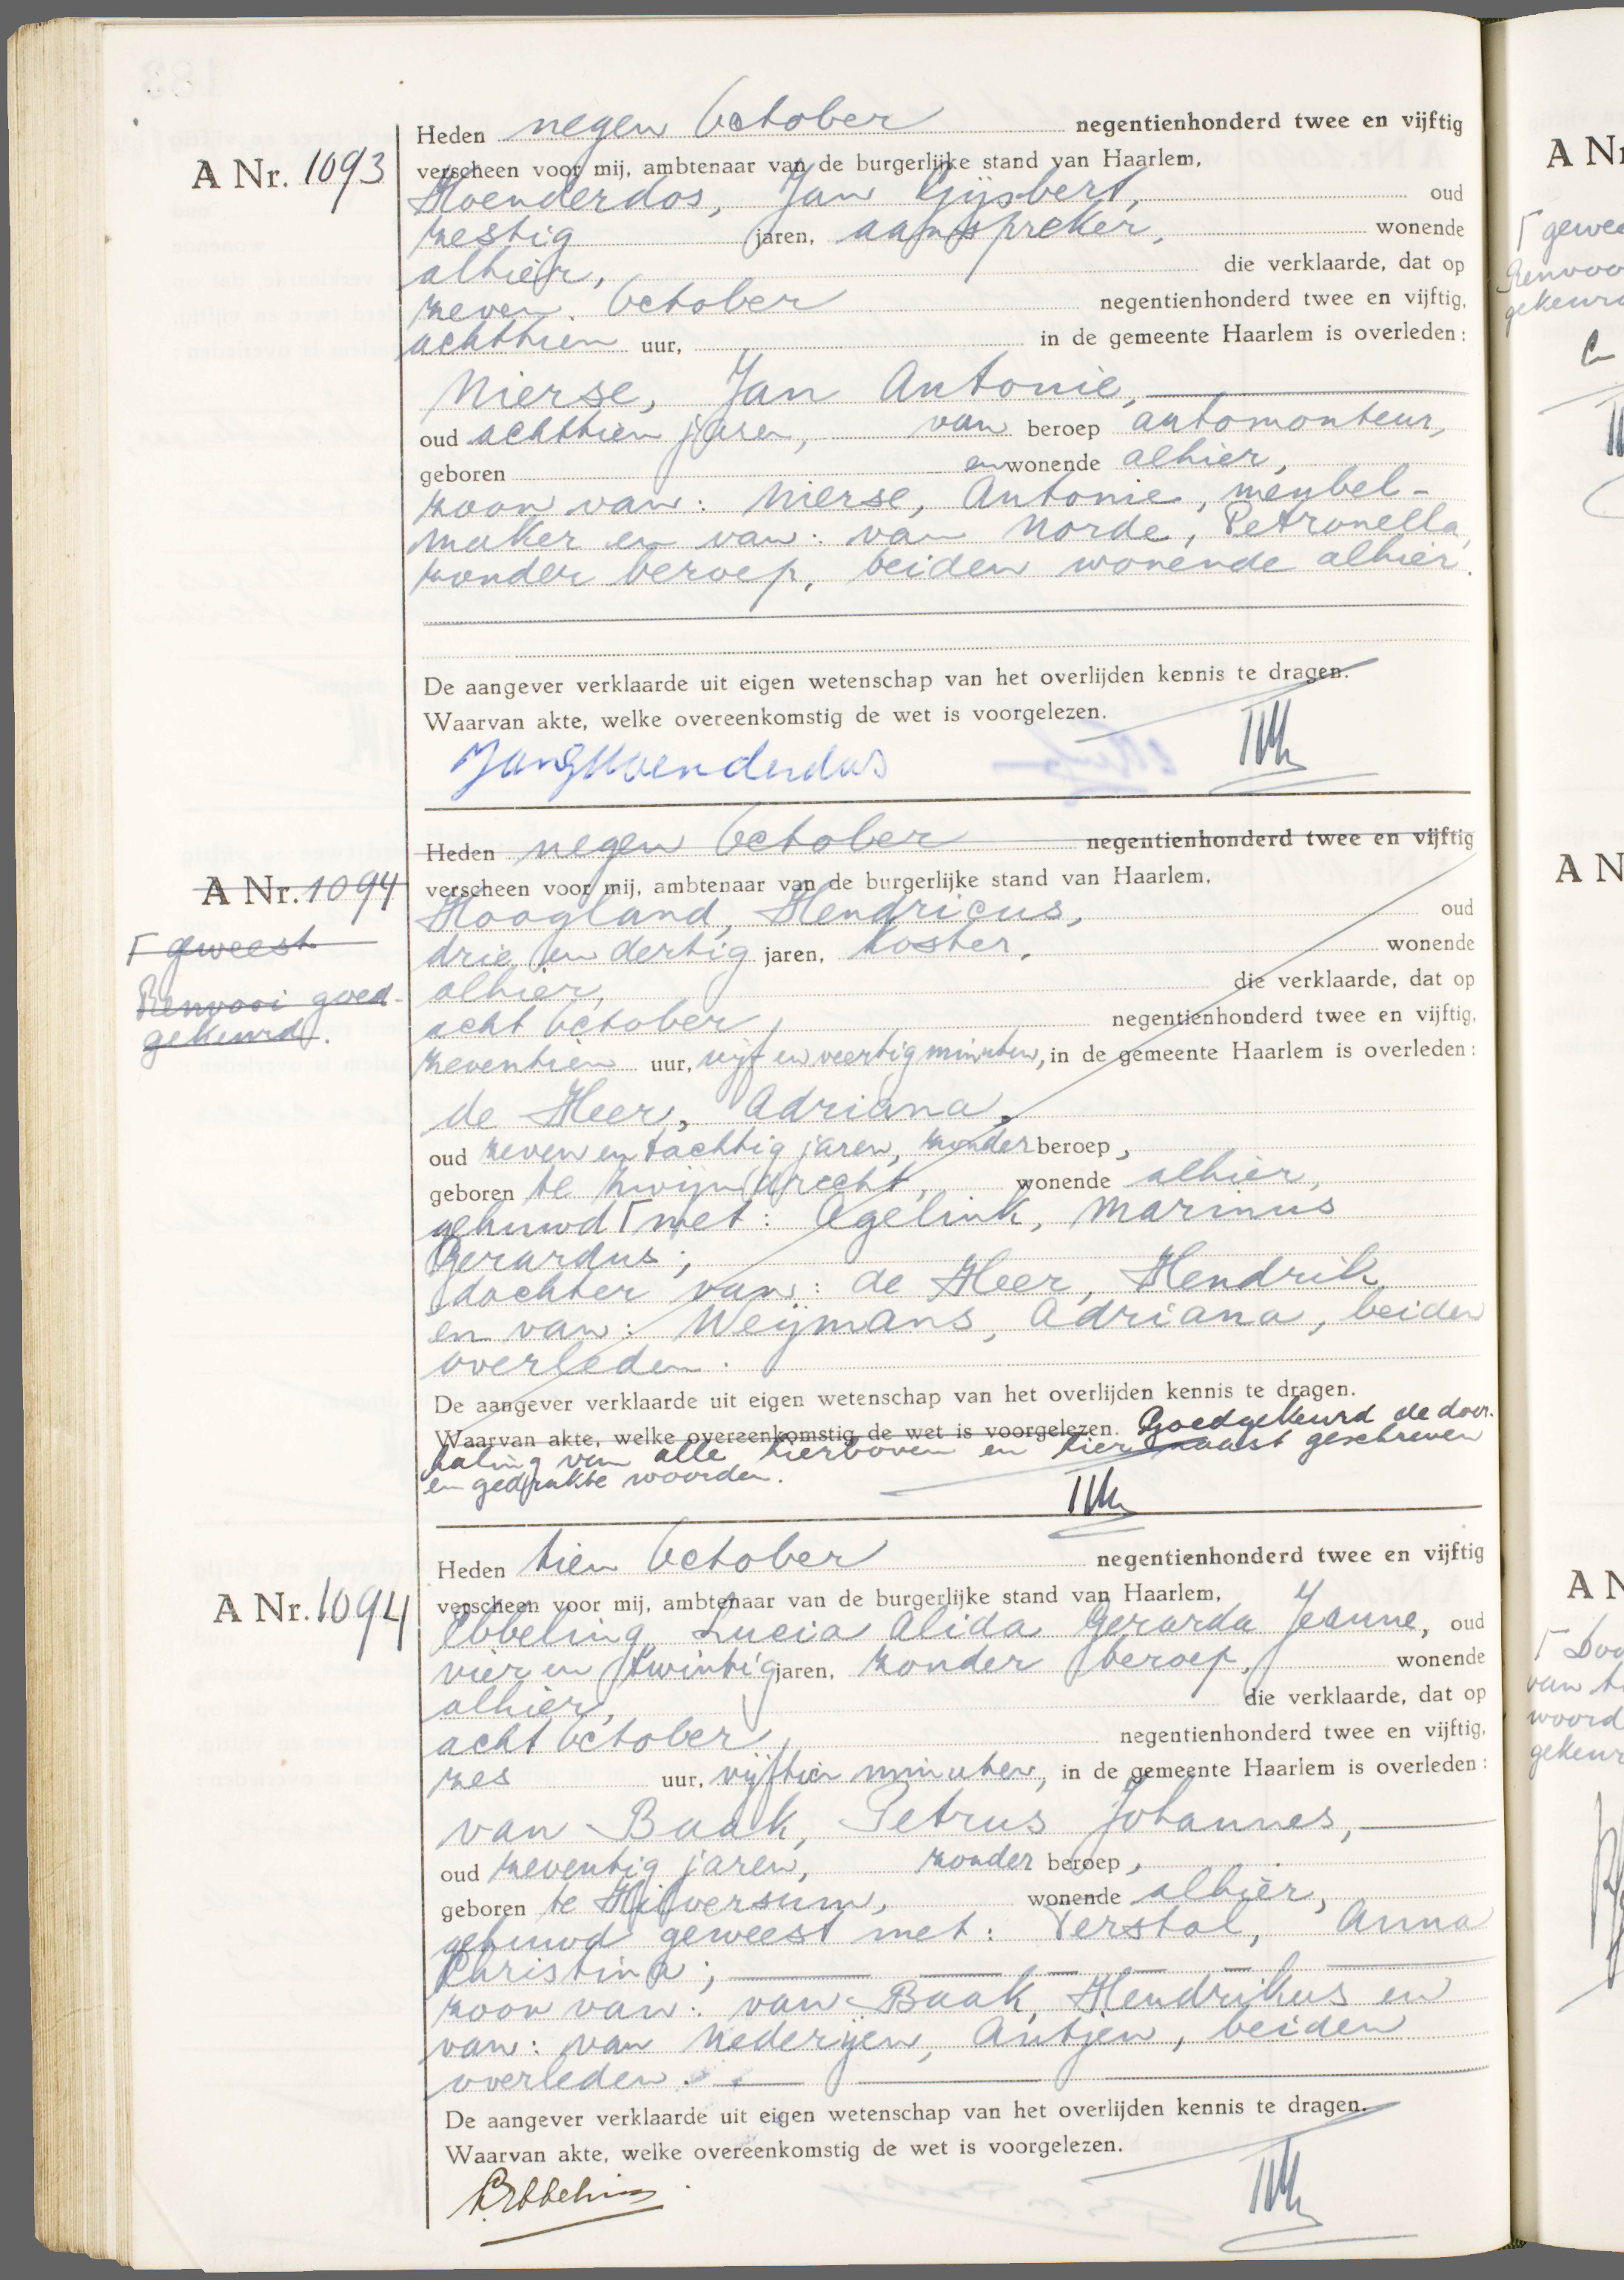 A Nr. 1093
Heden negen October negentienhonderd twee en vijftig
verscheen voor mij, ambtenaar van de burgerlijke stand van Haarlem,
Hoenderdos, Jan Gijsbert, oud
zestig jaren, aanspreker, wonende
alhier, die verklaarde, dat op
zeven October negentienhonderd twee en vijftig,
achttien uur, in de gemeente Haarlem is overleden:
Nierse, Jan Antonie,
oud achttien jaren, van beroep automonteur,
geboren en wonende alhier,
zoon van: Nierse, Antonie, meubel-
maker en van: van Norde, Petronella,
zonder beroep, beiden wonende alhier.
De aangever verklaarde uit eigen wetenschap van het overlijden kennis te dragen.
Waarvan akte, welke overeenkomstig de wet is voorgelezen.
JanGHoenderdos
A Nr. 1094
Heden negen October negentienhonderd twee en vijftig
verscheen voor mij, ambtenaar van de burgerlijke stand van Haarlem,
Hoogland, Hendricus, oud
drie en dertig jaren, koster, wonende
alhier, die verklaarde, dat op
acht October negentienhonderd twee en vijftig,
zeventien uur, vijf en veertig minuten, in de gemeente Haarlem is overleden:
de Heer, Adriana,
oud zeven en tachtig jaren, zonder beroep,
geboren te Zwijndrecht, wonende alhier,
gehuwd ┌ met: Agelink, Marinus
Gerardus;
dochter van: de Heer, Hendrik
en van: Weijmans, Adriana, beiden
overleden.
De aangever verklaarde uit eigen wetenschap van het overlijden kennis te dragen.
Waarvan akte, welke overeenkomstig de wet is voorgelezen. Goedgekeurd de door-
haling van alle hierboven en hiernaast geschreven
en gedrukte woorden.
┌ geweest
Renvooi goed-
gekeurd.
A Nr. 1094
Heden tien October negentienhonderd twee en vijftig
verscheen voor mij, ambtenaar van de burgerlijke stand van Haarlem,
Ebbeling, Lucia Alida Gerarda Jeanne, oud
vier en twintig jaren, zonder beroep, wonende
alhier, die verklaarde, dat op
acht October negentienhonderd twee en vijftig,
zes uur, vijftien minuten, in de gemeente Haarlem is overleden:
van Baak, Petrus Johannes,
oud zeventig jaren, zonder beroep,
geboren te Hilversum, wonende alhier,
gehuwd geweest met: Verstal, Anna
Christina;
zoon van: van Baak, Hendrikus en
van: van Nederijen, Antjen, beiden
overleden.
De aangever verklaarde uit eigen wetenschap van het overlijden kennis te dragen.
Waarvan akte, welke overeenkomstig de wet is voorgelezen.
Ebbeling
A Nr
┌ gewee
Renvoo
gekeur
A N
A N
┌ Doo
van
woord
gekeur